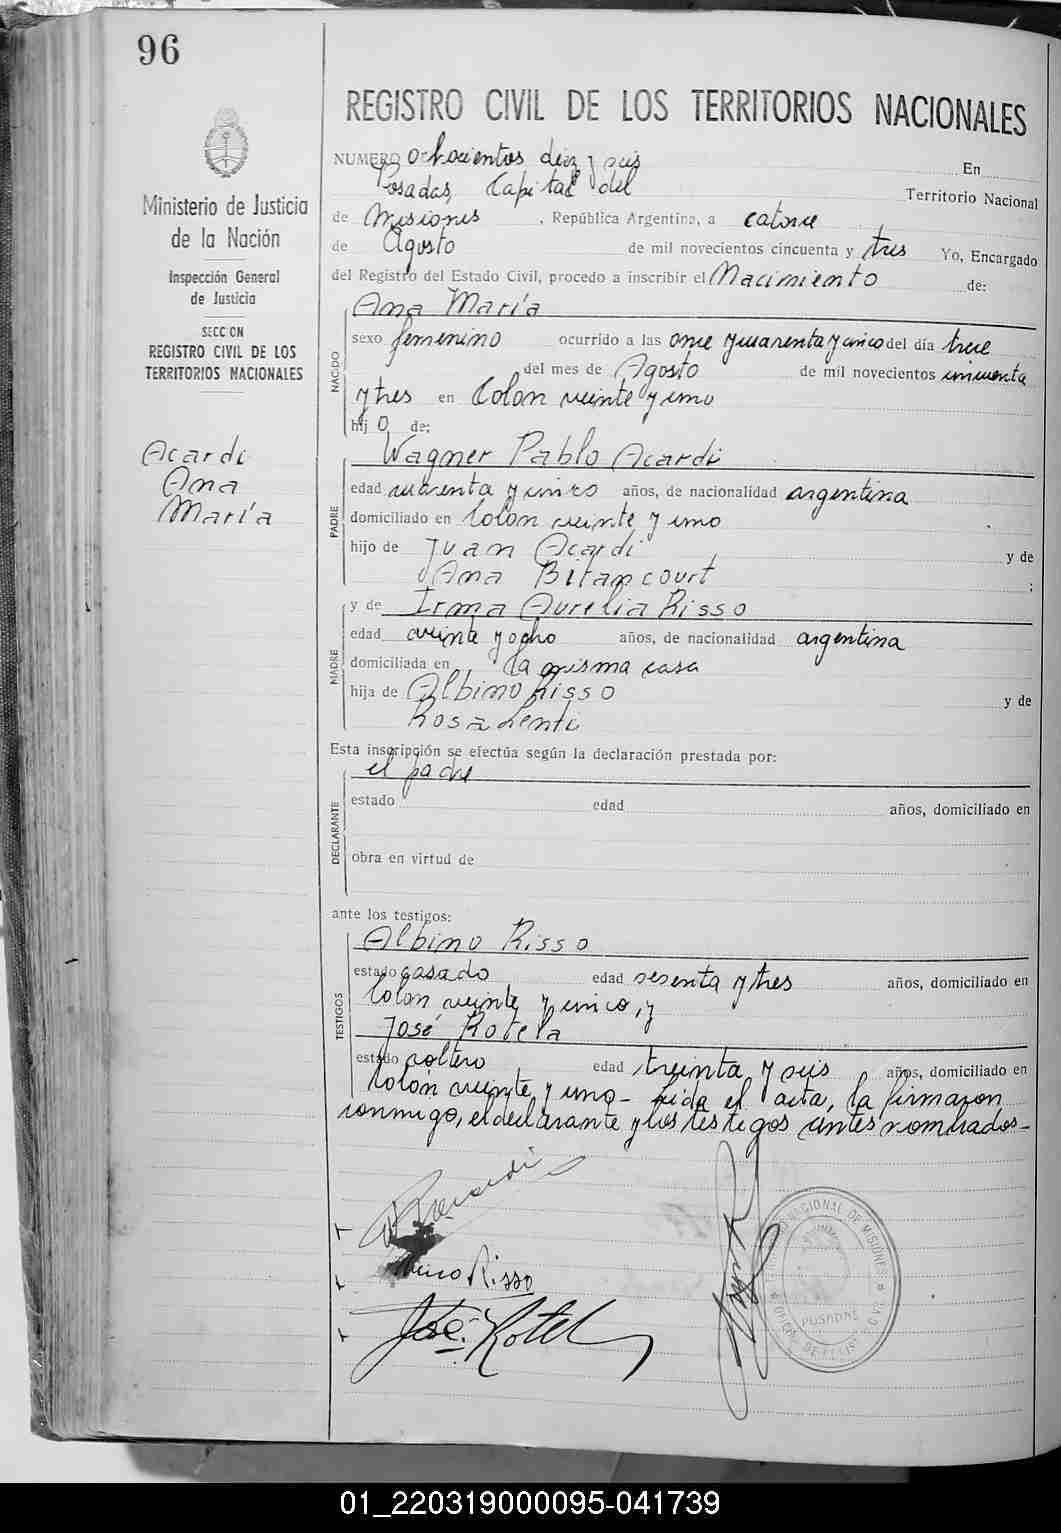 96
REGISTRO CIVIL DE LOS TERRITORIOS NACIONALES
Ministerio de Justicia
de la Nación
Inspección General
de Justicia
SECCION
REGISTRO CIVIL DE LOS
TERRITORIOS NACIONALES
Acardi
Ana
María
NUMERO ochocientos diez y seis En
Posadas, Capital del Territorio Nacional
de Misiones, República Argentina, a catorce
de Agosto de mil novecientos cincuenta y tres Yo, Encargado
del Registro del Estado Civil, procedo a inscribir el Nacimiento de:
Ana María
NACIDO
sexo femenino ocurrido a las once y cuarenta y cinco del día trece
del mes de Agosto de mil novecientos cincuenta
y tres en Colon veinte y uno
hij o de:
Wagner Pablo Acardi
PADRE
edad cuarenta y cinco años, de nacionalidad argentina
domiciliado en Colon veinte y uno
hijo de Juan Acardi y de
Ana Bitancourt ;
y de Irma Aurelia Risso
MADRE
edad veinte y ocho años, de nacionalidad argentina
domiciliada en la misma casa
hija de Albino Risso y de
Rosa Lenti
Esta inscripción se efectúa según la declaración prestada por:
el padre
DECLARANTE
estado edad años, domiciliado en
obra en virtud de
ante los testigos:
Albino Risso
TESTIGOS
estado casado edad sesenta y tres años, domiciliado en
Colon veinte y cinco, y
José Rotela
estado soltero edad treinta y seis años, domiciliado en
Colón veinte y uno - Leida el acta, la firmaron
conmigo, el declarante y los testigos antes nombrados -
Risso
José Rotela
NACIONAL DE MISIONES
POSADAS
01_220319000095-041739